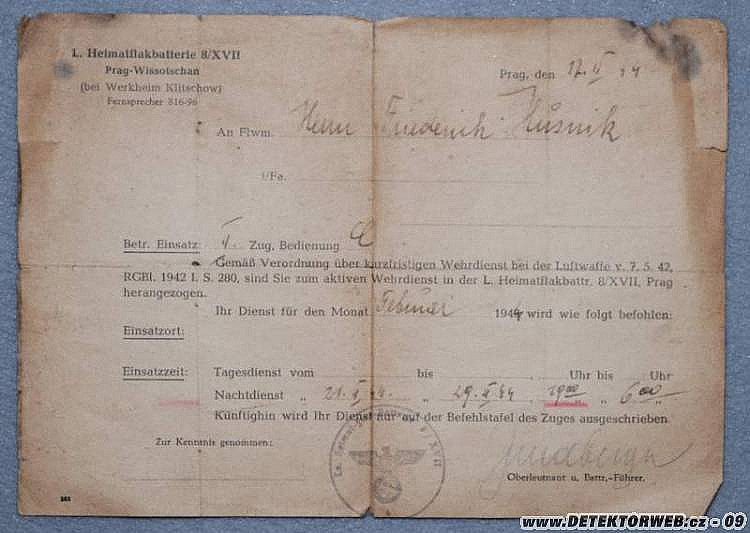 L. Heimatflakbatterie 8/XVII
Prag-Wissotschan
(bei Werkheim Klitschow)
Fernsprecher 816-96
Prag, den 17. II 44
An Flwm. Herrn Friederich Husnik
i/Fa.
Betr. Einsatz: I. Zug, Bedienung
Gemäß Verordnung über kurzfristigen Wehrdienst bei der Luftwaffe v. 7. 5. 42,
RGBl. 1942 I. S. 280, sind Sie zum aktiven Wehrdienst in der L. Heimatflakbattr. 8/XVII, Prag
herangezogen.
Ihr Dienst für den Monat Februar 1944 wird wie folgt befohlen:
Einsatzort:
Einsatzzeit: Tagesdienst vom bis Uhr bis Uhr
Nachtdienst „ 21. II. 44. „ 29. II 44 19 00 „ 6,00 „
Künftighin wird Ihr Dienst nur auf der Befehlstafel des Zuges ausgeschrieben.
Zur Kenntnis genommen:
8/XVII
Oberleutnant u. Battr.-Führer.
www.DETEKTORWEB.cz - 09